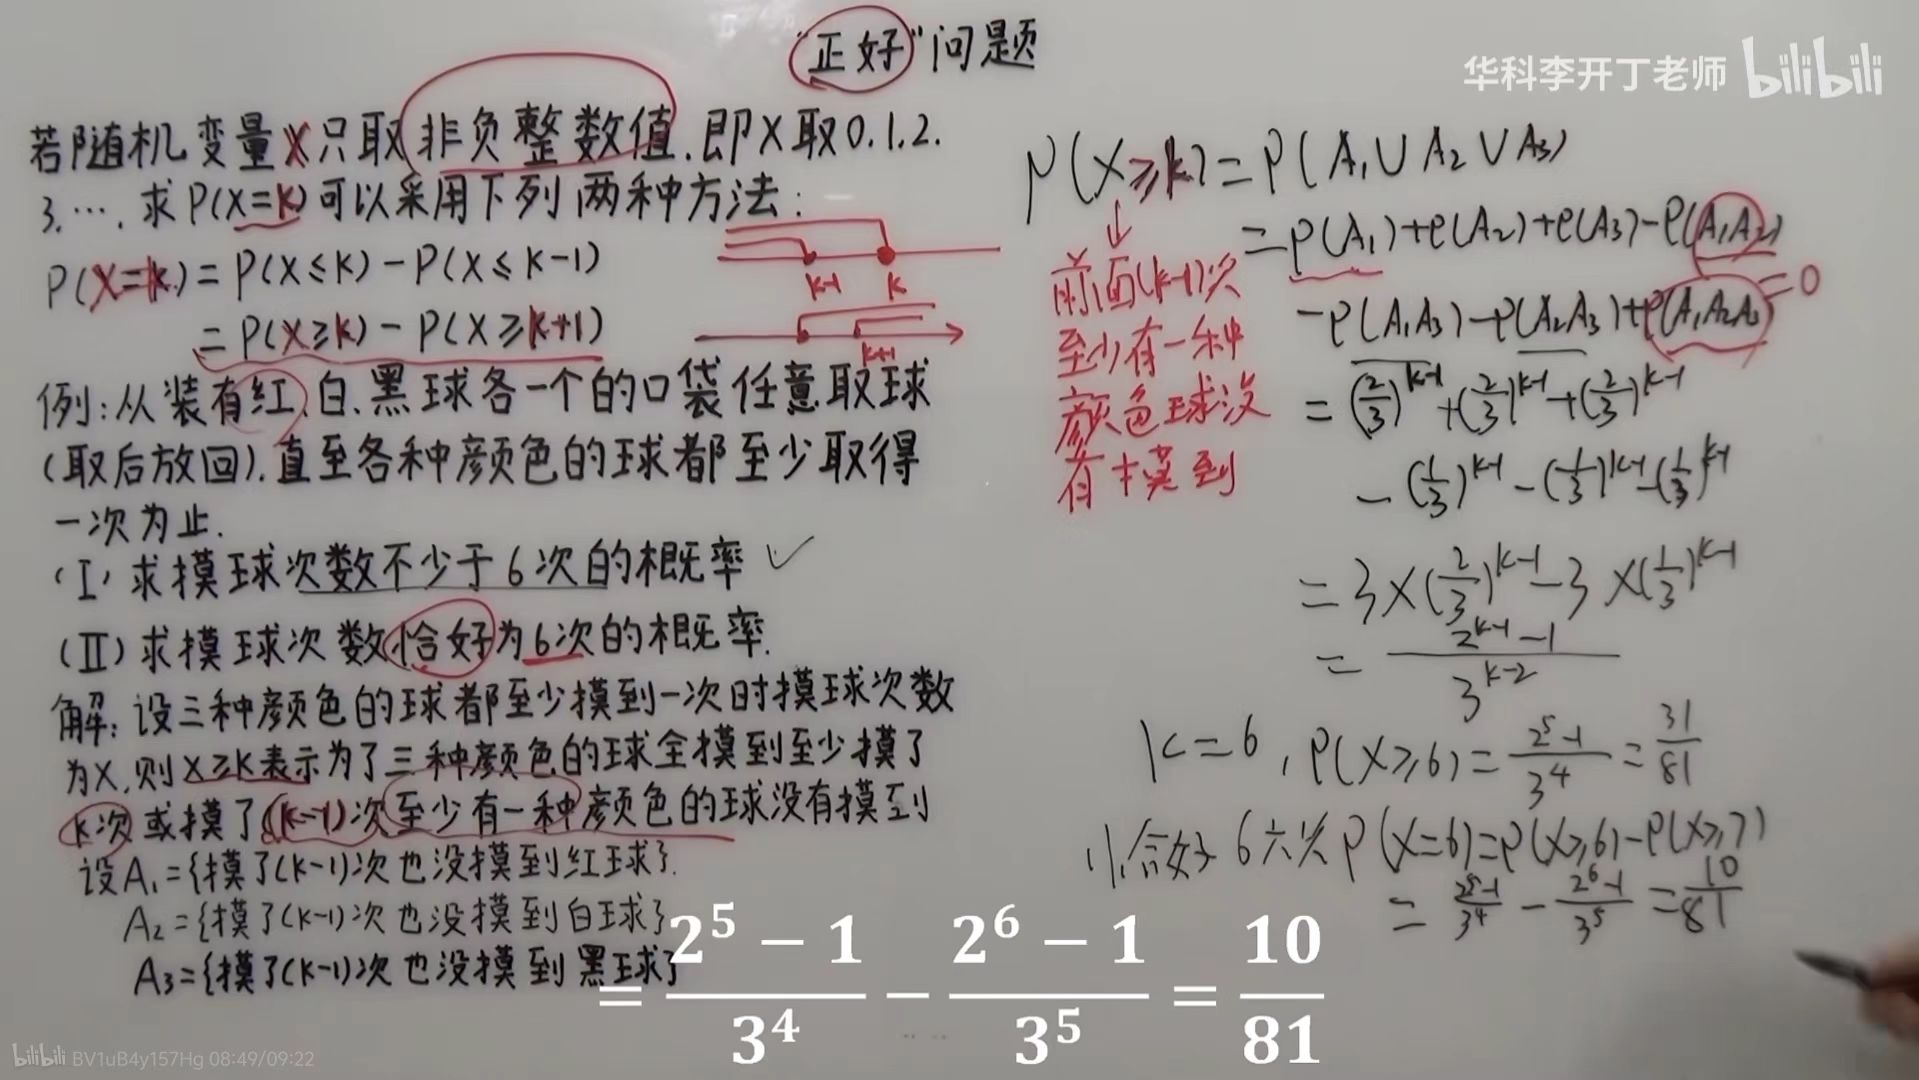 "正好"问题
华科李开丁老师 bilibili
若随机变量X只取非负整数值.即X取0.1.2.
3.….求P(X=K)可以采用下列两种方法:
P(X=k)=P(X≤K)-P(X≤K-1)
=P(X≥K)-P(X≥K+1)
k-1 k
k+1
例:从装有红.白.黑球各一个的口袋任意取球
(取后放回).直至各种颜色的球都至少取得
一次为止.
(I)求摸球次数不少于6次的概率✓
(II)求摸球次数恰好为6次的概率.
解:设三种颜色的球都至少摸到一次时摸球次数
为X,则X≥K表示为了三种颜色的球全摸到至少摸了
K次或摸了(K-1)次至少有一种颜色的球没有摸到
设A₁={摸了(K-1)次也没摸到红球}.
A₂={摸了(K-1)次也没摸到白球}
A₃={摸了(K-1)次也没摸到黑球}
P(X≥k)=P(A₁∪A₂∪A₃)
=P(A₁)+P(A₂)+P(A₃)-P(A₁A₂)
-P(A₁A₃)-P(A₂A₃)+P(A₁A₂A₃)=0
↓
前面(k-1)次
至少有一种
颜色球没
有摸到
=(2/3)^(k-1)+(2/3)^(k-1)+(2/3)^(k-1)
-(1/3)^(k-1)-(1/3)^(k-1)-(1/3)^(k-1)
=3×(2/3)^(k-1)-3×(1/3)^(k-1)
=(2^(k-1)-1)/3^(k-2)
K=6,P(X≥6)=(2⁵-1)/3⁴=31/81
恰好6次P(X=6)=P(X≥6)-P(X≥7)
=(2⁵-1)/3⁴-(2⁶-1)/3⁵=10/81
=(2⁵-1)/3⁴-(2⁶-1)/3⁵=10/81
bilibili BV1uB4y157Hg 08:49/09:22